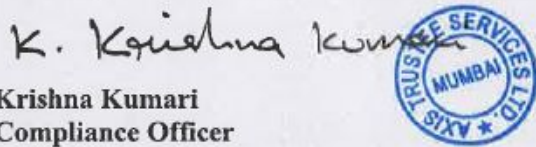 K. Krishna Kumari
AXIS TRUSTEE SERVICES LTD. ★
MUMBAI
Krishna Kumari
Compliance Officer